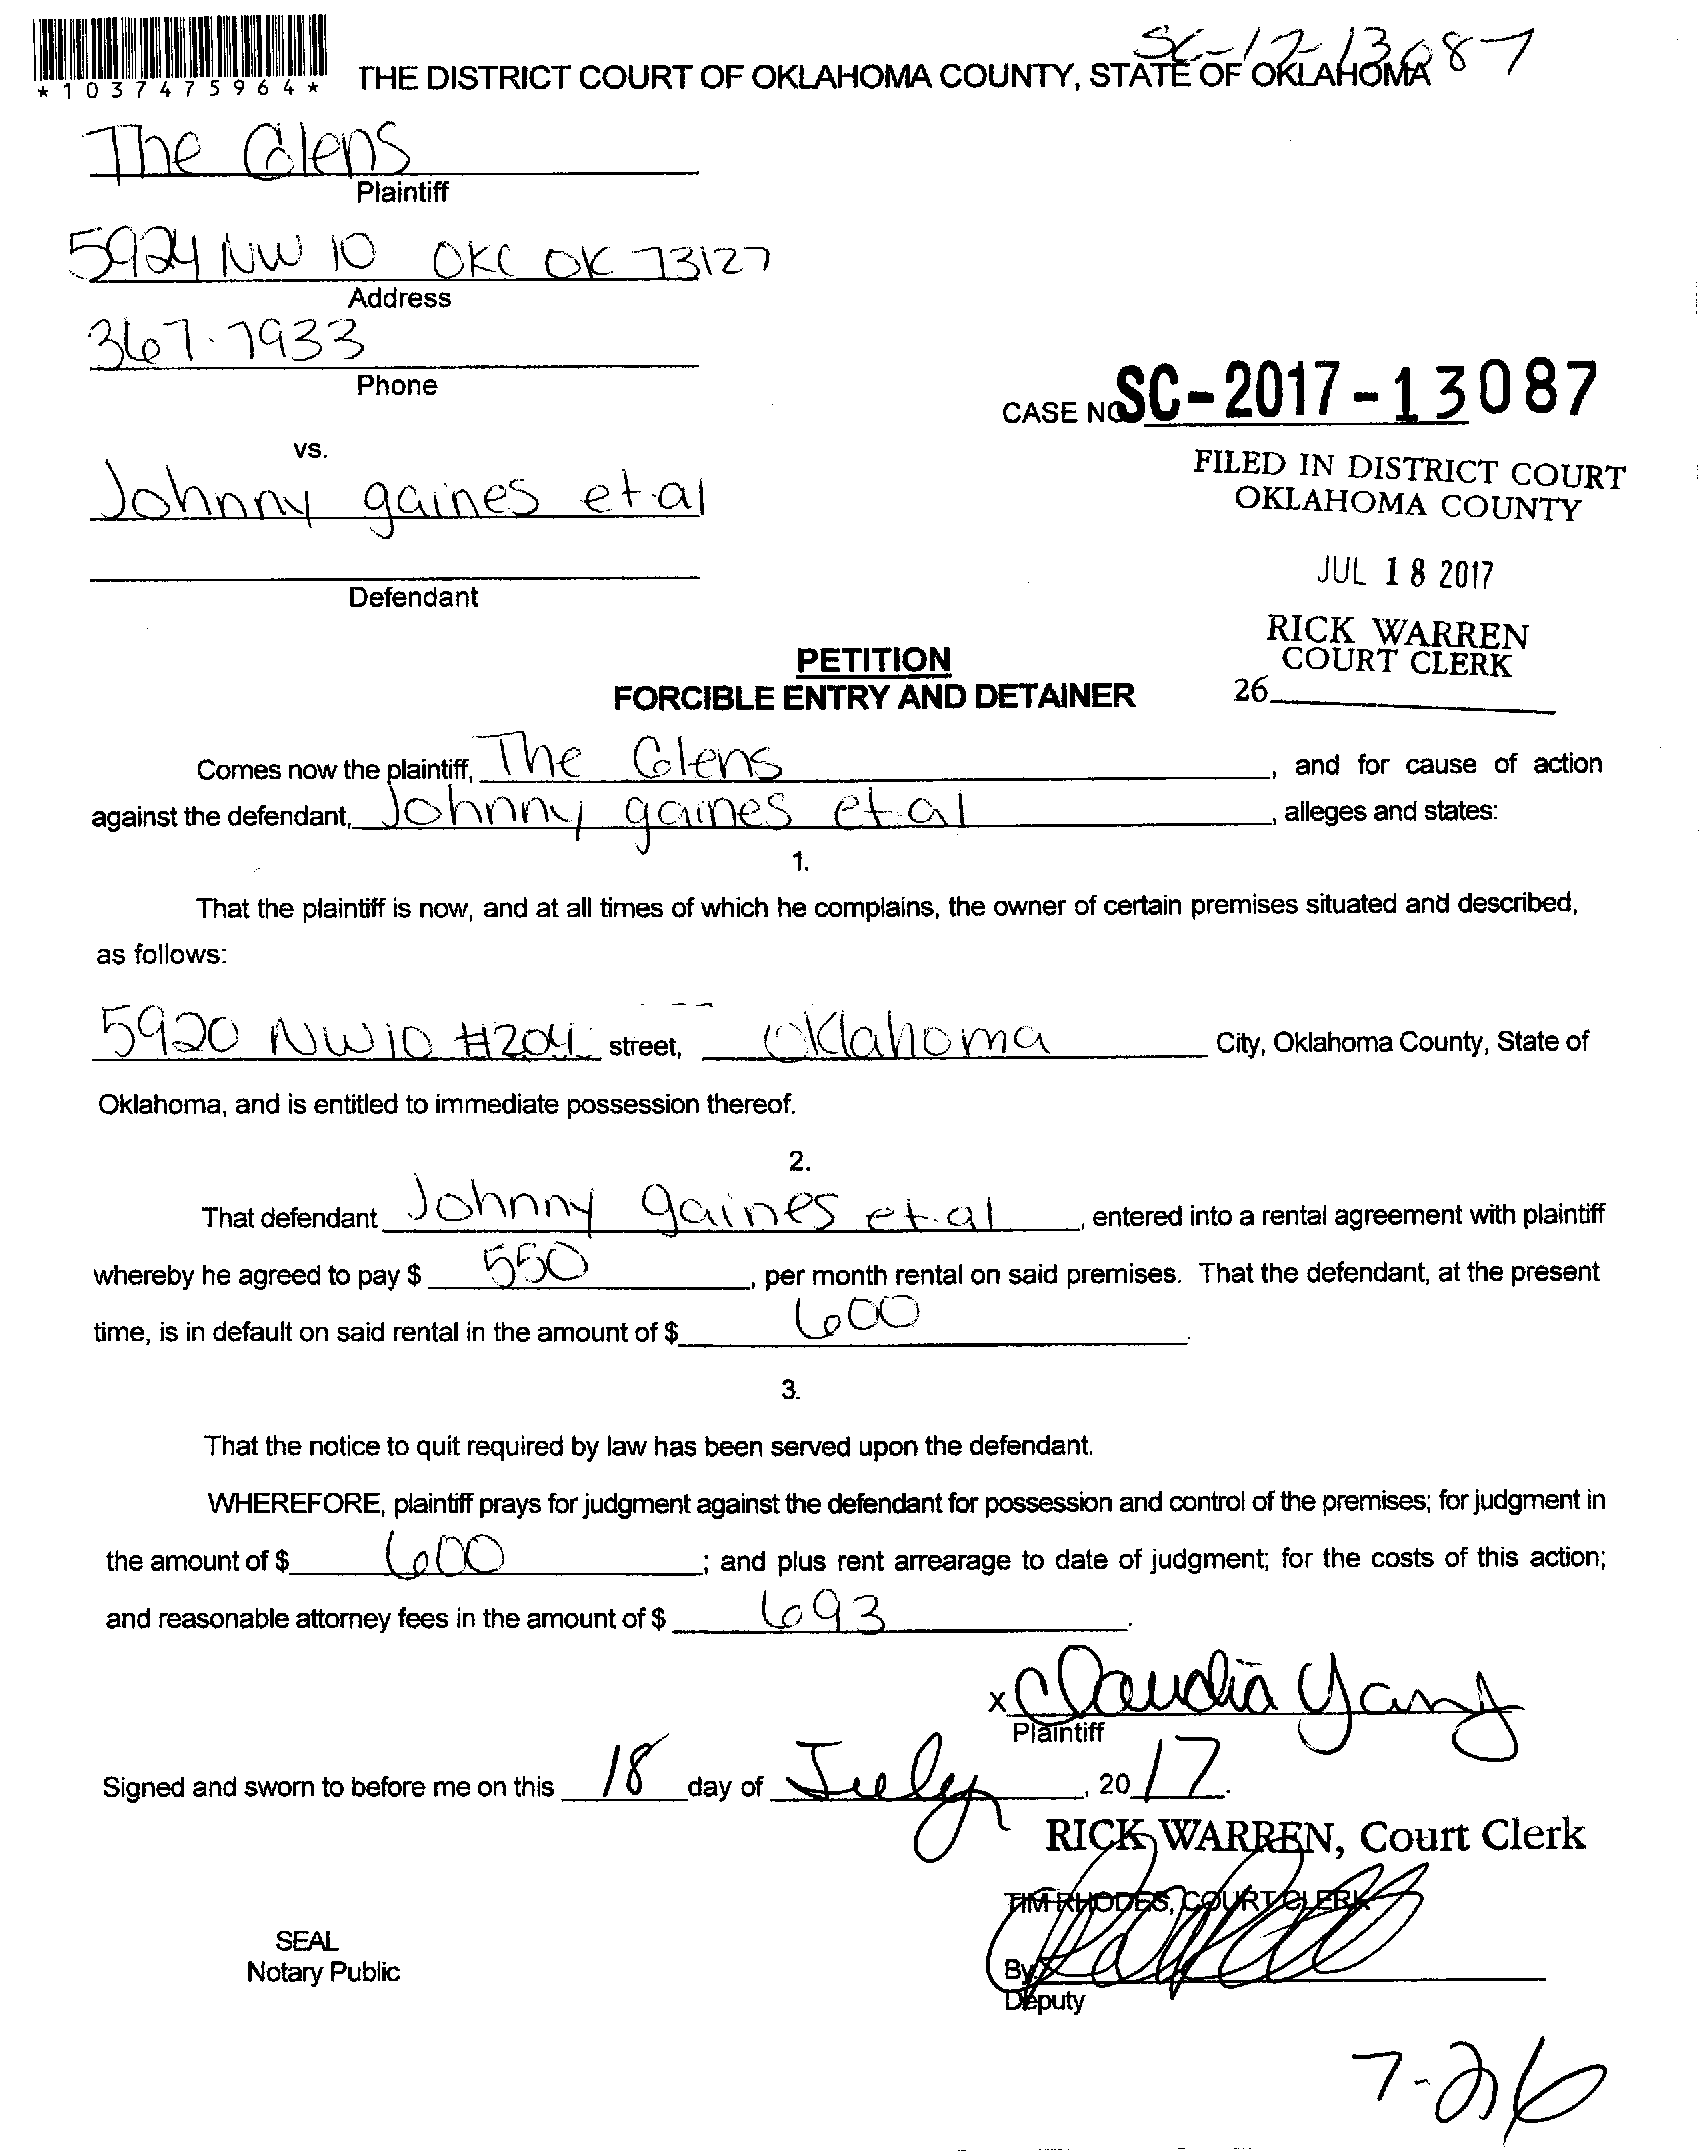 SC-17-13087
*1037475964*
THE DISTRICT COURT OF OKLAHOMA COUNTY, STATE OF OKLAHOMA
The Glens
Plaintiff
5924 NW 10 OKC OK 73127
Address
367-7933
Phone
CASE NO SC-2017-13087
vs.
FILED IN DISTRICT COURT
OKLAHOMA COUNTY
Johnny gaines et al
JUL 18 2017
Defendant
RICK WARREN
COURT CLERK
26
PETITION
FORCIBLE ENTRY AND DETAINER
Comes now the plaintiff, The Glens, and for cause of action
against the defendant, Johnny gaines et al, alleges and states:
1.
That the plaintiff is now, and at all times of which he complains, the owner of certain premises situated and described,
as follows:
5920 NW 10 #204 street, Oklahoma City, Oklahoma County, State of
Oklahoma, and is entitled to immediate possession thereof.
2.
That defendant Johnny gaines et al, entered into a rental agreement with plaintiff
whereby he agreed to pay $ 550, per month rental on said premises. That the defendant, at the present
time, is in default on said rental in the amount of $ 600.
3.
That the notice to quit required by law has been served upon the defendant.
WHEREFORE, plaintiff prays for judgment against the defendant for possession and control of the premises; for judgment in
the amount of $ 600; and plus rent arrearage to date of judgment; for the costs of this action;
and reasonable attorney fees in the amount of $ 693.
x Claudia Yang
Plaintiff
Signed and sworn to before me on this 18 day of July, 2017.
RICK WARREN, Court Clerk
TIM RHODES, COURT CLERK
SEAL
Notary Public
By
Deputy
7-26